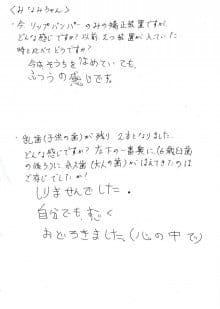 〈みなみちゃん〉
・今、リップバンパーのみの矯正装置ですが、
どんな感じですか？以前、2つ装置が入っていた
時と比べてどうですか？
今はそうちをなめていても、
ふつうの感じです。
・乳歯(子供の歯)が残り 2本となりました。
どんな感じですか？左下の一番奥に、(6歳臼歯
の後ろ)に永久歯(大人の歯)がはえてきたのは
ご存じでしたか！
しりませんでした。
自分でも、すごく
おどろきました。(心の中で)